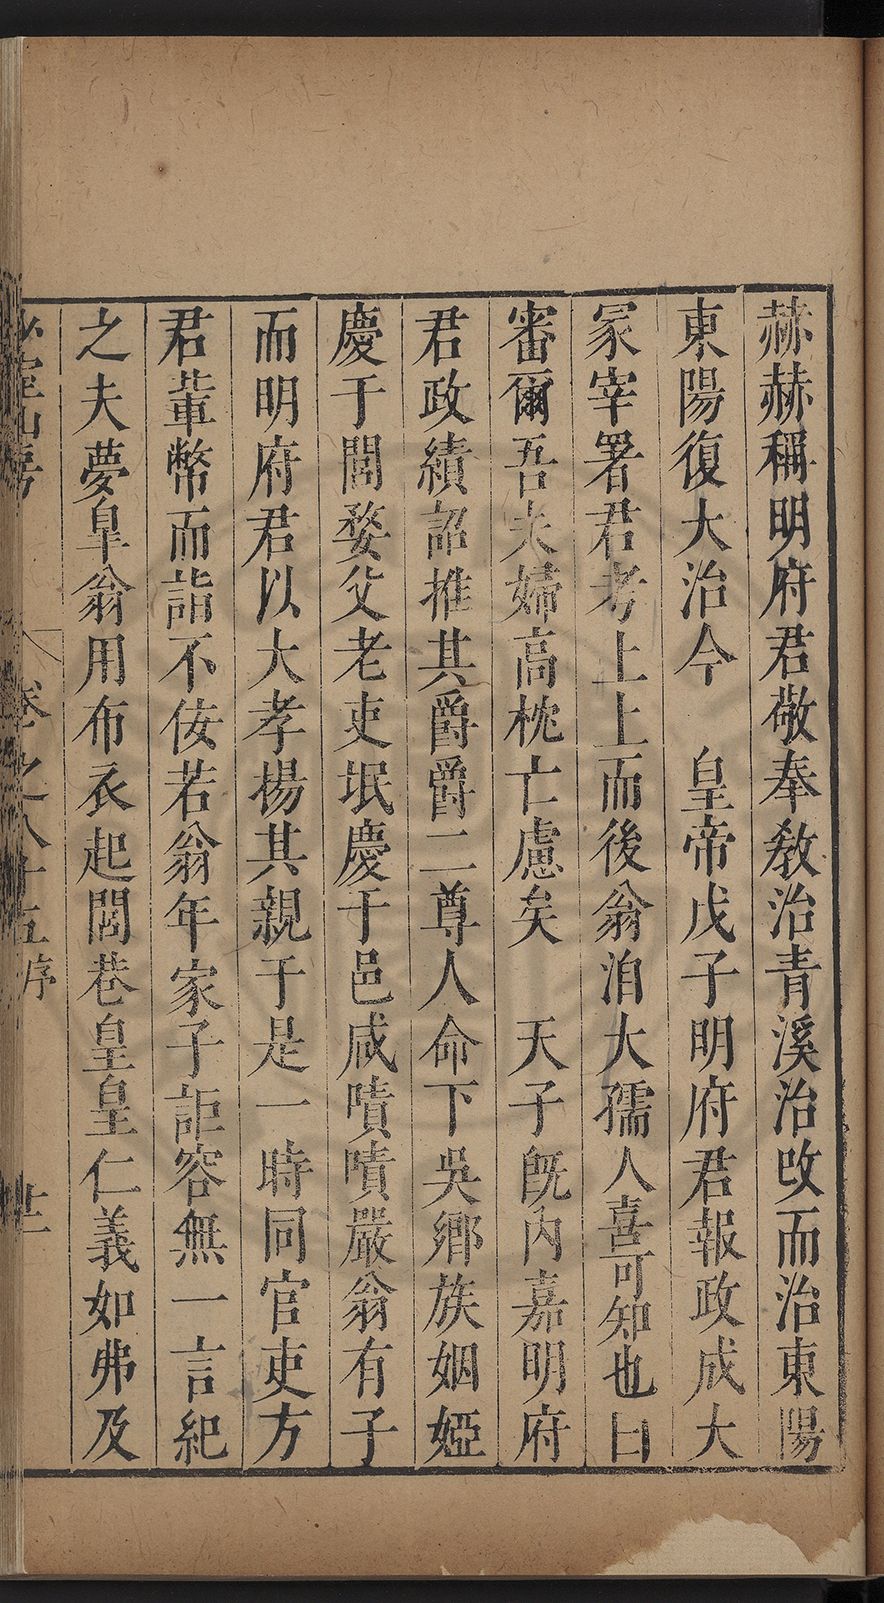 赫赫稱明府君敬奉教治青溪治改而治東陽
東陽復大治今　皇帝戊子明府君報政成大
冡宰署君考上上而後翁洎大孺人喜可知也曰
審爾吾夫婦高枕亡慮矣　天子既內嘉明府
君政績詔推其爵爵二尊人命下吳鄉族姻婭
慶于閭婺父老吏垊慶于邑咸嘖嘖嚴翁有子
而明府君以大孝揚其親于是一時同官吏方
君輩幣而詣不佞若翁年家子詎容無一言紀
之夫夢皐翁用布衣起閭巷皇皇仁義如弗及
少室山房　卷之八十五序　廿二